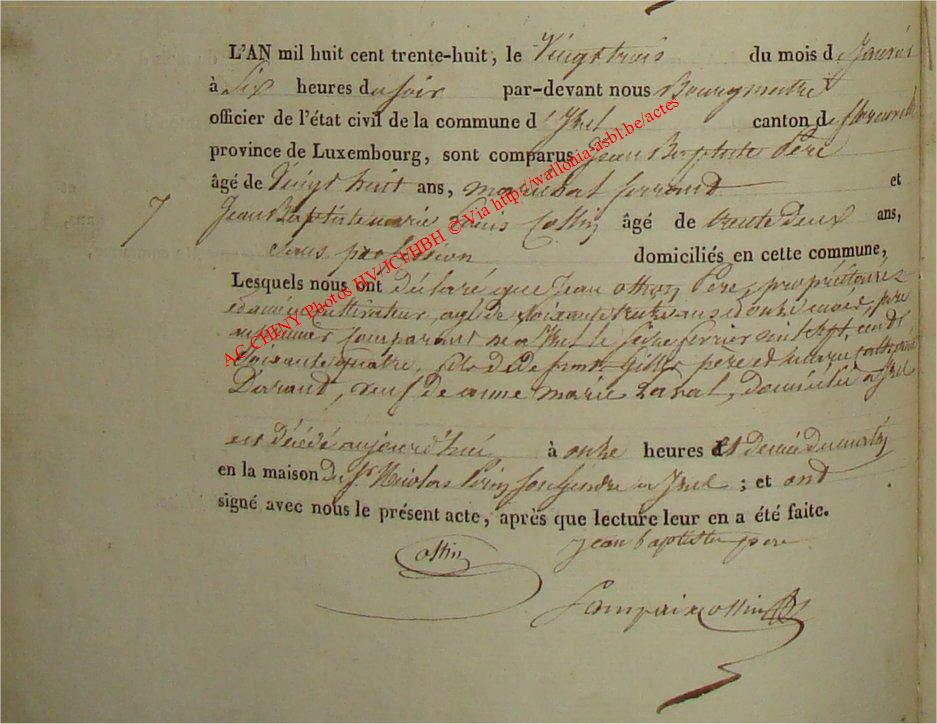 L'AN mil huit cent trente-huit, le Vingt trois du mois de Janvier
à Six heures du soir par-devant nous Bourgmestre
officier de l'état civil de la commune d'Izel canton de florenville
province de Luxembourg, sont comparus Jean Baptiste Pere
âgé de Vingt huit ans, marechal ferrand et
7 Jean Baptiste marie Louis Ossin âgé de trente deux ans,
Sans profession domiciliés en cette commune,
Lesquels nous ont déclaré que Jean Pere, propriétaire
cultivateur, agé de Soixante treize ans onze mois, père
au premier Comparant né a Izel le Seize fevrier mil Sept cent
Soixante quatre, fils de Gilles pere et de marie
Durand, veuf de anne marie, domicilié a Izel
est décédé aujourd'hui à onze heures et demie du matin
en la maison du Sr Nicolas Son Gendre a Izel ; et ont
signé avec nous le présent acte, après que lecture leur en a été faite.
Ossin jean baptiste pere
Ossin
AG CHINY Photos HV/JCl/HBH © Via http://wallonia-asbl.be/actes